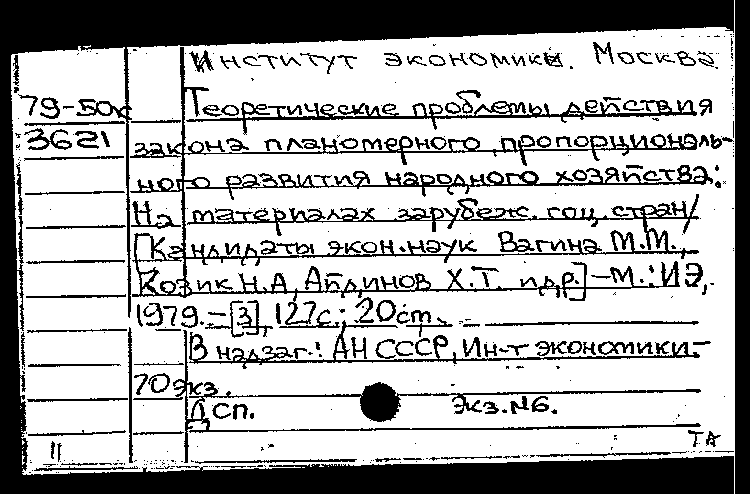 Институт экономики. Москва.
79-50к Теоретические проблемы действия
3621 закона планомерного, пропорциональ-
ного развития народного хозяйства:
На материалах зарубеж. соц. стран/
[Кандидаты экон. наук Вагина М.М.,
Козик Н.А, Абдинов Х.Т. и др.] -М.: ИЭ,
1979.-[3], 127с.; 20см.
В надзаг.: АН СССР, Ин-т экономики.-
70 экз.
Дсп. Экз.№6.
11 ТА